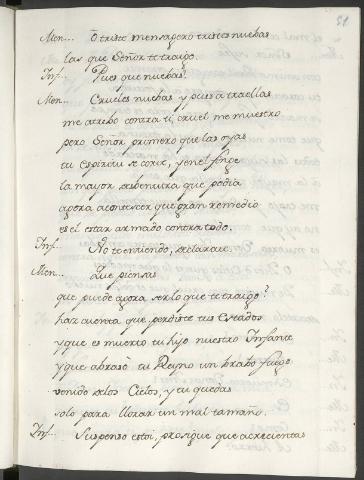 51
Men... O triste mensagero tristes nuebas
las que Señor te traigo.
Inf... Pues que nuebas?
Men... Crueles nuebas y pues a traellas
me atrebo contra ti, cruel me muestro
pero Señor primero que las oyas
tu espiritu se esfuerce, y en el finge
la mayor desbentura que podia
agora acontescer que gran remedio
es el estar armado contra todo.
Inf... No te entiendo, declarate.
Men... Que piensas
que puede agora ser lo que te traigo?
haz cuenta que perdiste tus estados
y que es muerto tu hijo nuestro Infante
y que abrasò tu Reyno un brabo fuego
venido de los Cielos, y tu quedas
solo para llorar un mal tamaño.
Inf... Suspenso estoi, prosigue que acrecientas